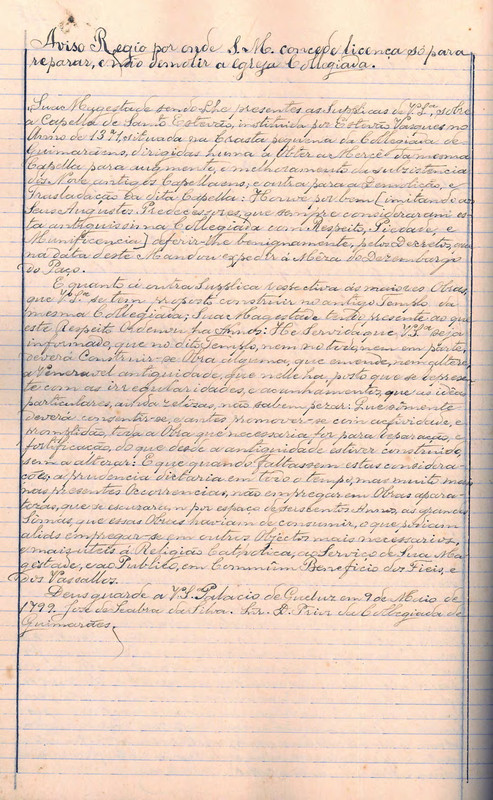 Aviso Regio por onde S. M. concede licença só para
reparar, e não demolir a Egreja Collegiada.
Sua Magestade sendo-lhe presentes as Supplicas de V. Sª, sobre
a Capella de Santo Estevão, instituida por Estevão Vasques no
Anno de 13 , situada na Crasta pequena da Collegiada de
Guimaraens, dirigidas huma a obter a Mercê da mesma
Capella para augmento, e melhoramento da subsistencia
dos Nove antigos Capellaens; e outra para a Demolição, e
Trasladação da dita Capella: Houve por bem [imitando a
Seus Augustos Predecessores, que sempre consideraram es-
ta antiquissima Collegiada com Respeito, Piedade, e
Munificencia] deferir-lhe benignamente, pelos Decretos, que
na data deste Mandou expedir á Meza do Dezembargo
do Paço.
E quanto á outra Supplica respectiva ás maiores Obras,
que V. Sª se tem proposto construir no antigo Templo da
mesma Collegiada; Sua Magestade tendo presente ao que
este Respeito Ordenou ha Annos: He Servida que V. Sª seja
informado, que no dito Templo, nem no todo, nem em parte,
deverá Construir-se Obra alguma, que emende, nem altere
a Veneravel antiguidade, que nelle ha, posto que se depreen-
te com as irregularidades, e acanhamentos, que as idéas
particulares, ainda zelozas, não sabem pezar: Que sómente
deverá consentir-se, e antes promover-se com actividade, e
promptidão, toda a Obra que necessaria for para reparação, e
fortificação, do que desde a antiguidade estiver construido,
sem o alterar: E que quando faltassem estas considera-
ções, a prudencia dictaria em todo o tempo, mas muito mais
nas presentes Ocorrencias, não empregar em Obras apara-
tozas, que se escuzara por espaço de seiscentos Annos, as grandes
Sommas, que essas Obras haviam de consumir, e que podiam
aliás empregar-se em outros Objectos mais necessarios,
e mais uteis á Religião Catholica, ao Serviço de Sua Ma-
gestade, e ao Publico, em Commum Beneficio dos Fieis, e
dos Vassallos.
Deus guarde a V. S. Palacio de Queluz em 9 de Maio de
1799. José de Seabra da Silva. Snr. D. Prior da Collegiada de
Guimarães.